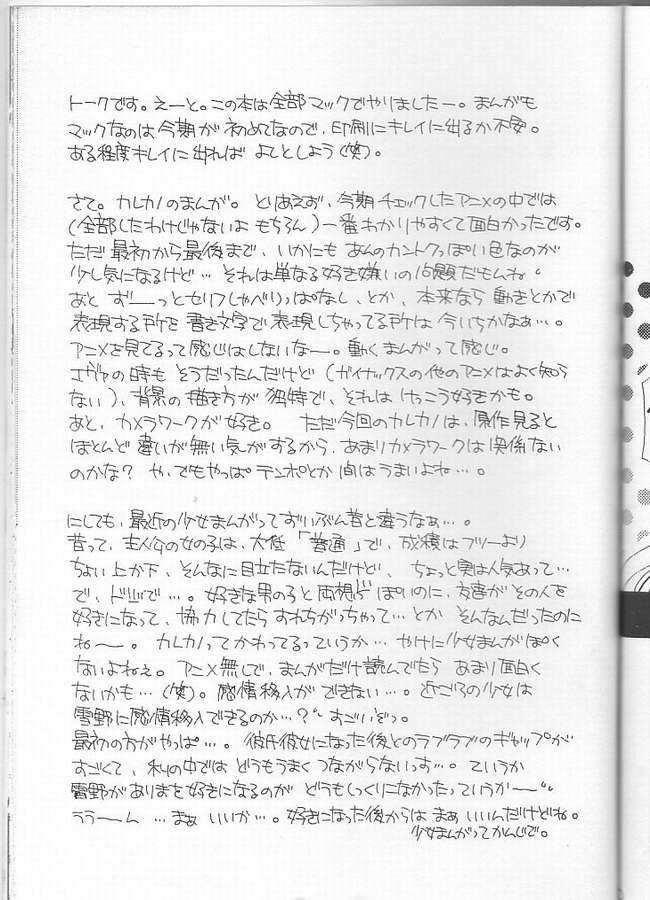 トークです。えーと。この本は全部マックでやりましたー。まんがも
マックなのは今期が初めてなので、印刷にキレイに出るか不安。
ある程度キレイに出れば よしとしよう(笑)。
さて。カレカノのまんが。とりあえず、今期チェックしたアニメの中では
(全部したわけじゃないよ もちろん)一番わかりやすくて面白かったです。
ただ最初から最後まで、いかにも あんのカントクっぽい色なのが
少し気になるけど… それは単なる好き嫌いの問題だもんね。
あと ずーーっとセリフしゃべりっぱなし、とか、本来なら 動きとかで
表現する所を 書き文字で表現しちゃってる所は 今いちかなぁ…。
アニメを見てるって感じはしないなー。動くまんがって感じ。
エヴァの時も そうだったんだけど(ガイナックスの他のアニメはよく知ら
ない)、背景の描き方が 独特で、それは けっこう好きかも。
あと、カメラワークが好き。 ただ今回のカレカノは、原作見ると
ほとんど違いが無い気がするから、あまりカメラワークは関係ない
のかな? や、でもやっぱテンポとか 間はうまいよね…。
にしても、最近の少女まんがってずいぶん昔と違うなぁ…。
昔って、主人公の女の子は、大低「普通」で、成績はフツーより
ちょい上か下、そんなに目立たないんだけど、ちょっと実は人気あって…
で、ドジで…。好きな男の子と両想い ぽいのに、友達がその人を
好きになって、協力してたら すれちがっちゃって…とか そんなんだったのに
ねー。 カレカノってかわってるっていうか… やけに少女まんがぽく
ないよねぇ。アニメ無しで、まんがだけ読んでたら あまり面白く
ないかも…(笑)。感情移入が できない…。近ごろの少女は
雪野に感情移入できるのか…? すごいぞっ。
最初の方がやっぱ…。彼氏彼女になった後とのラブラブのギャップが
すごくて、私の中では どうもうまく つながらないっす…。ていうか
雪野がありまを好きになるのが どうもしっくりこなかったっていうかー
ううーん …まぁ いいか…。好きになった後からは まぁ いいんだけどね。
少女まんがってかんじで。